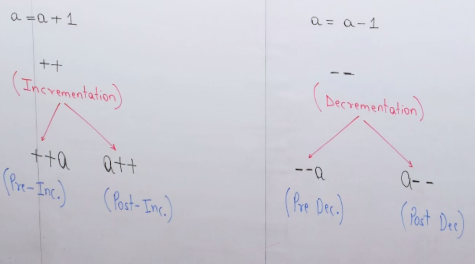 a = a + 1
++
(Incrementation)
++a a++
(Pre-Inc.) (Post-Inc.)
a = a - 1
--
(Decrementation)
--a a--
(Pre Dec.) (Post Dec)